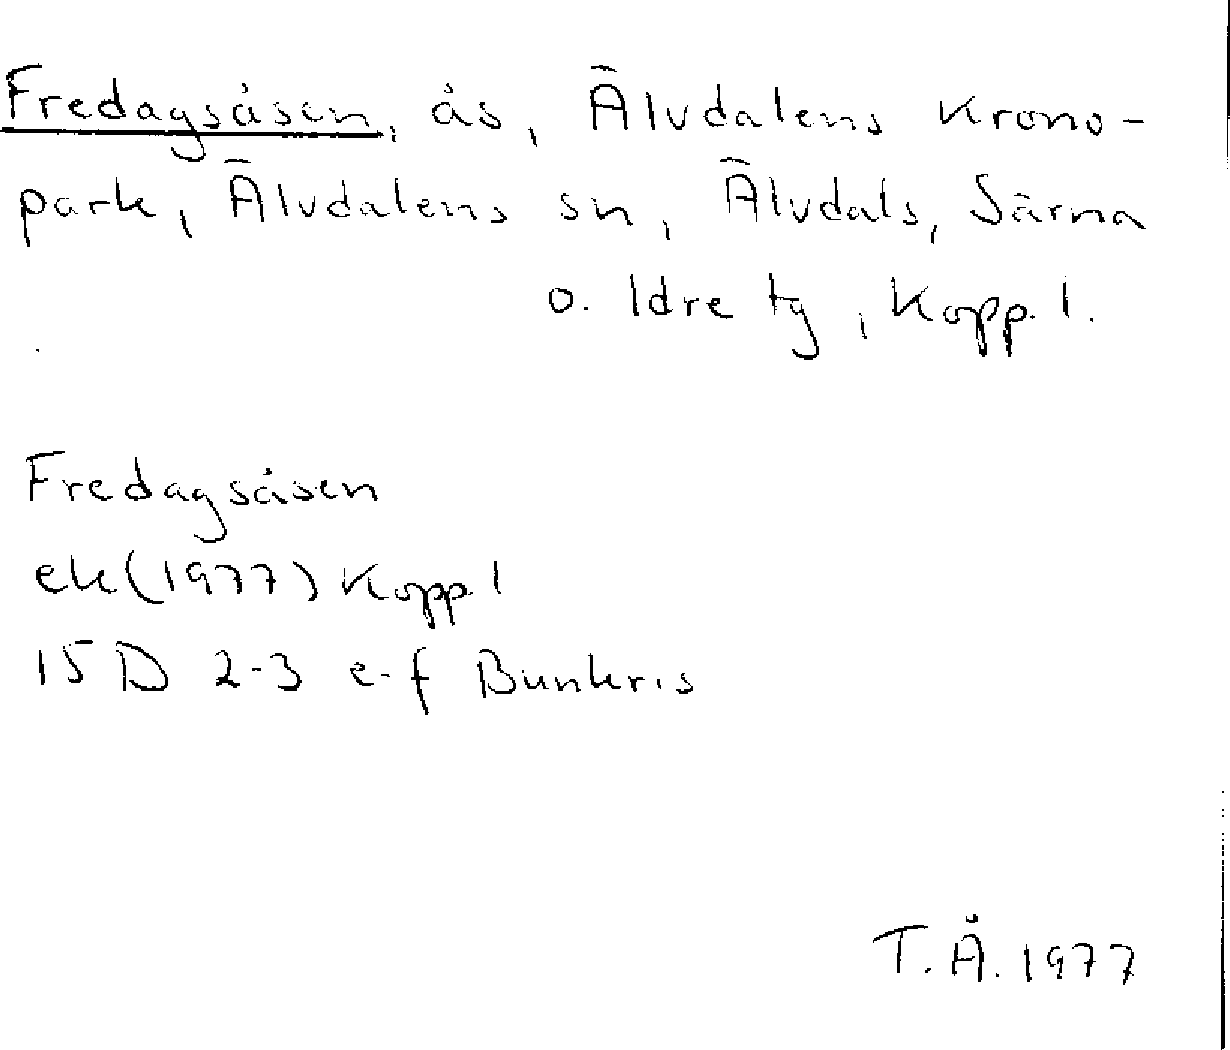 Fredagsåsen, ås, Älvdalens Krono-
park, Älvdalens sn, Älvdals, Särna
o. Idre tg, Kopp. l.
Fredagsåsen
ek (1977) Kopp. l
15 D 2-3 e-f Bunkris
T. Å. 1977